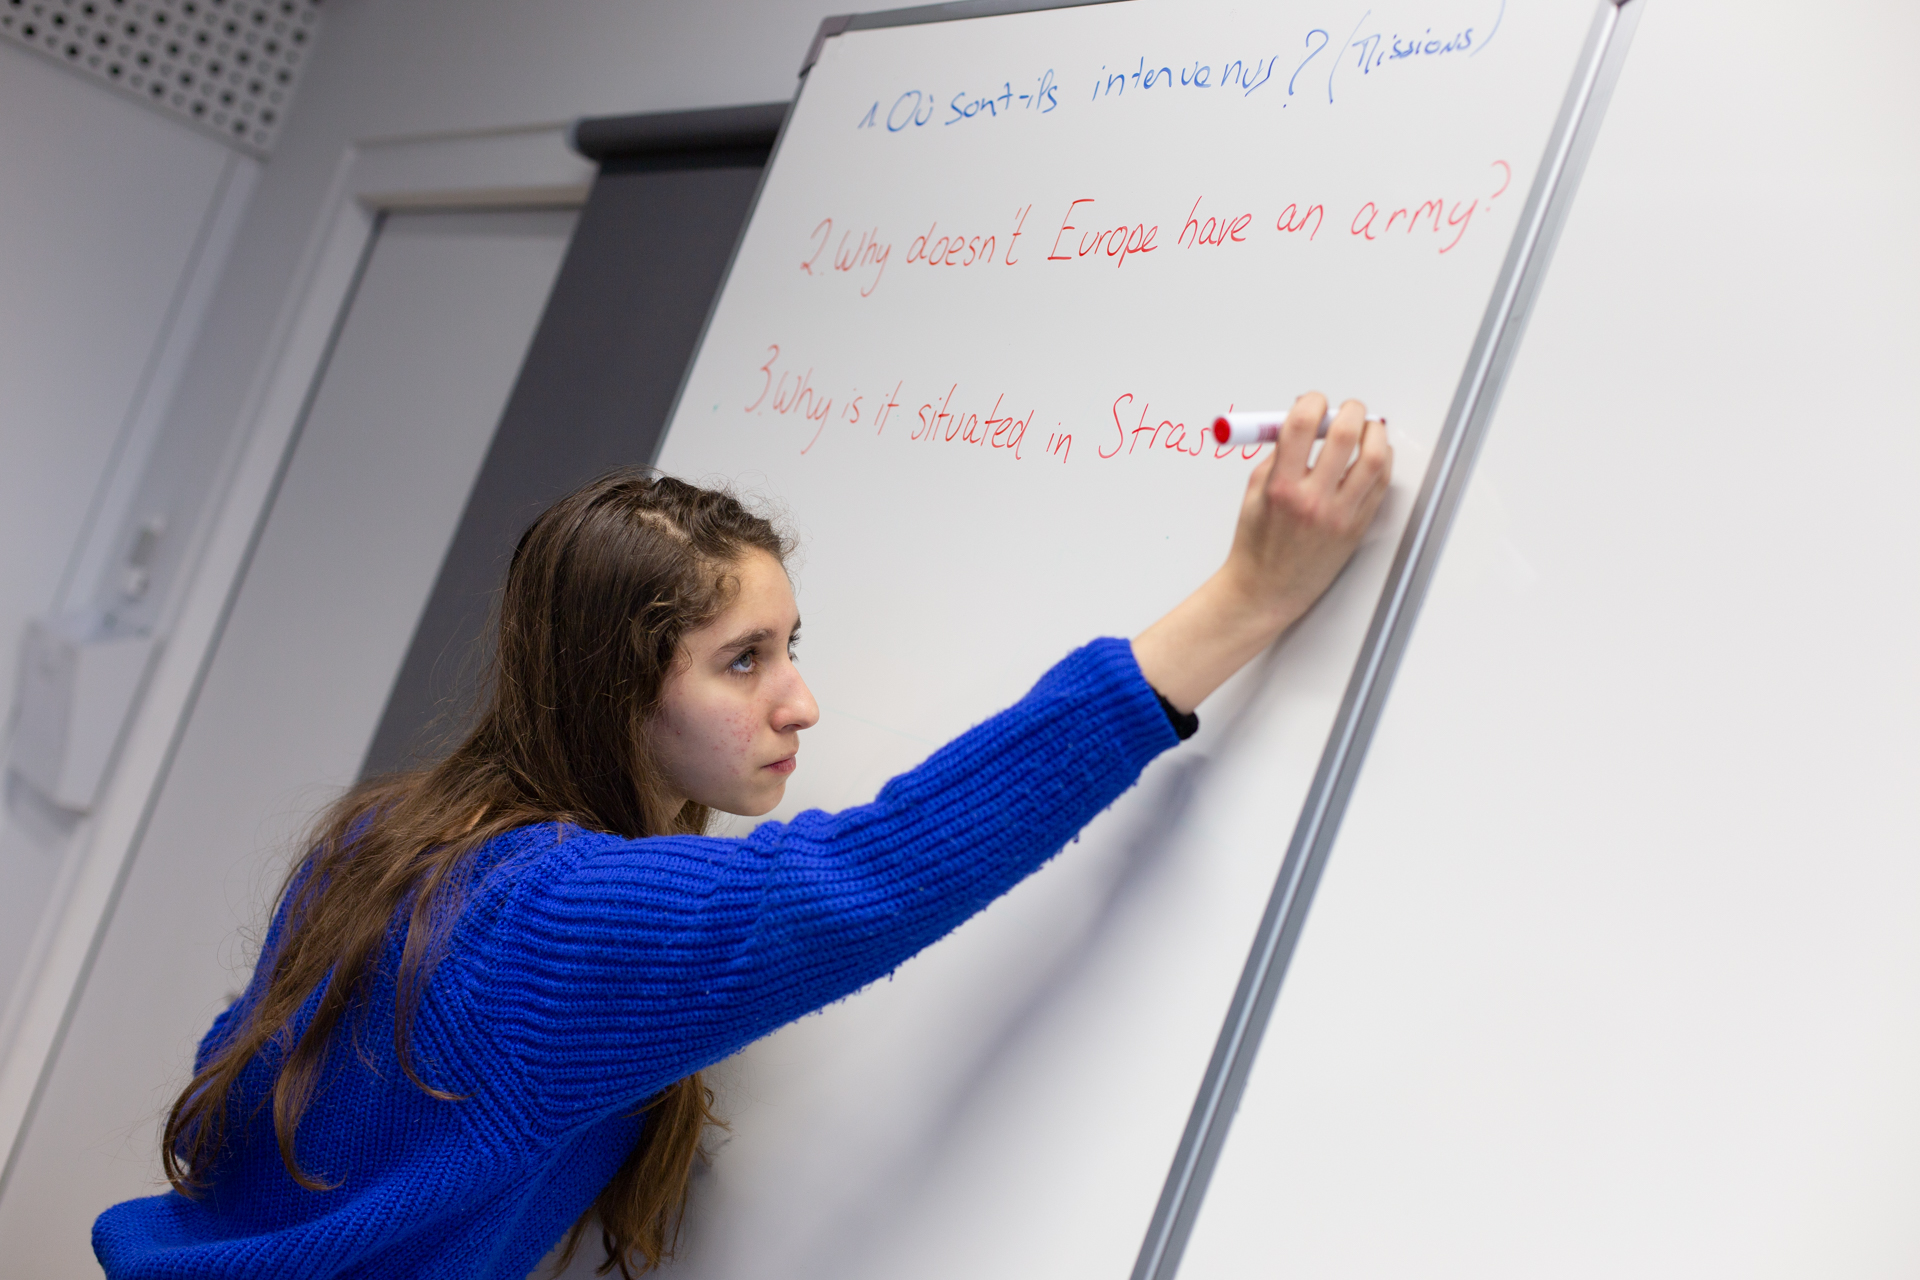 1 Où sont-ils intervenus? (Missions)
2. Why doesn't Europe have an army?
3. Why is it situated in Strasbo